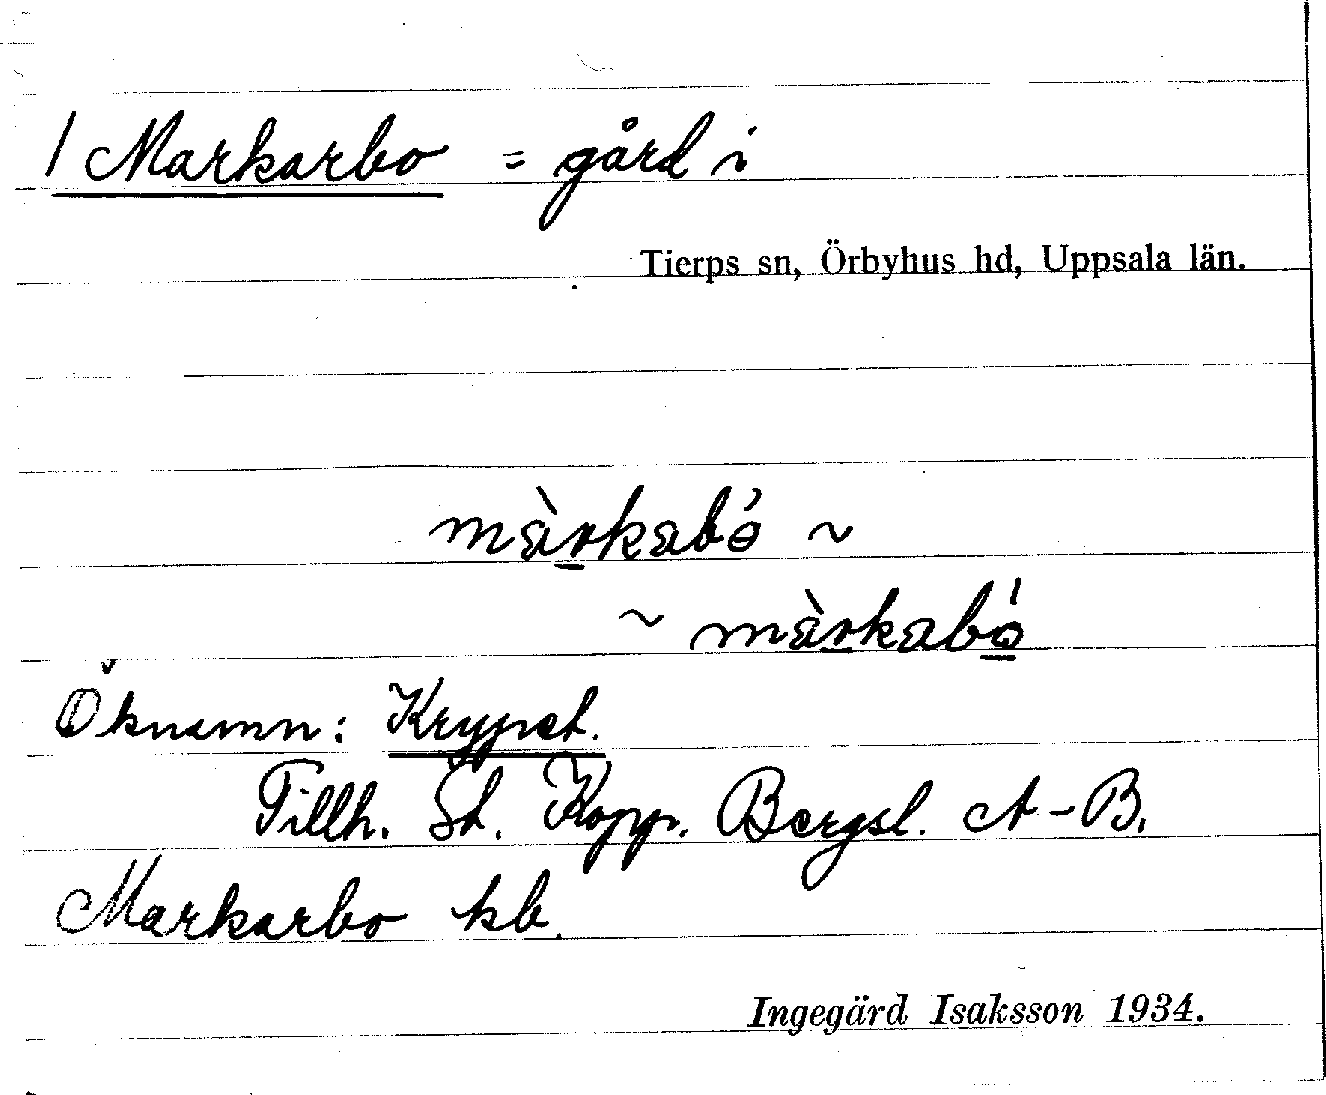 1 Markarbo = gård i
Tierps sn, Örbyhus hd, Uppsala län.
màrkabó ~
~ màrkabó
Öknamn: Krypet.
Tillh. St. Kopp. Bergsl. A-B.
Markarbo kb.
Ingegärd Isaksson 1934.